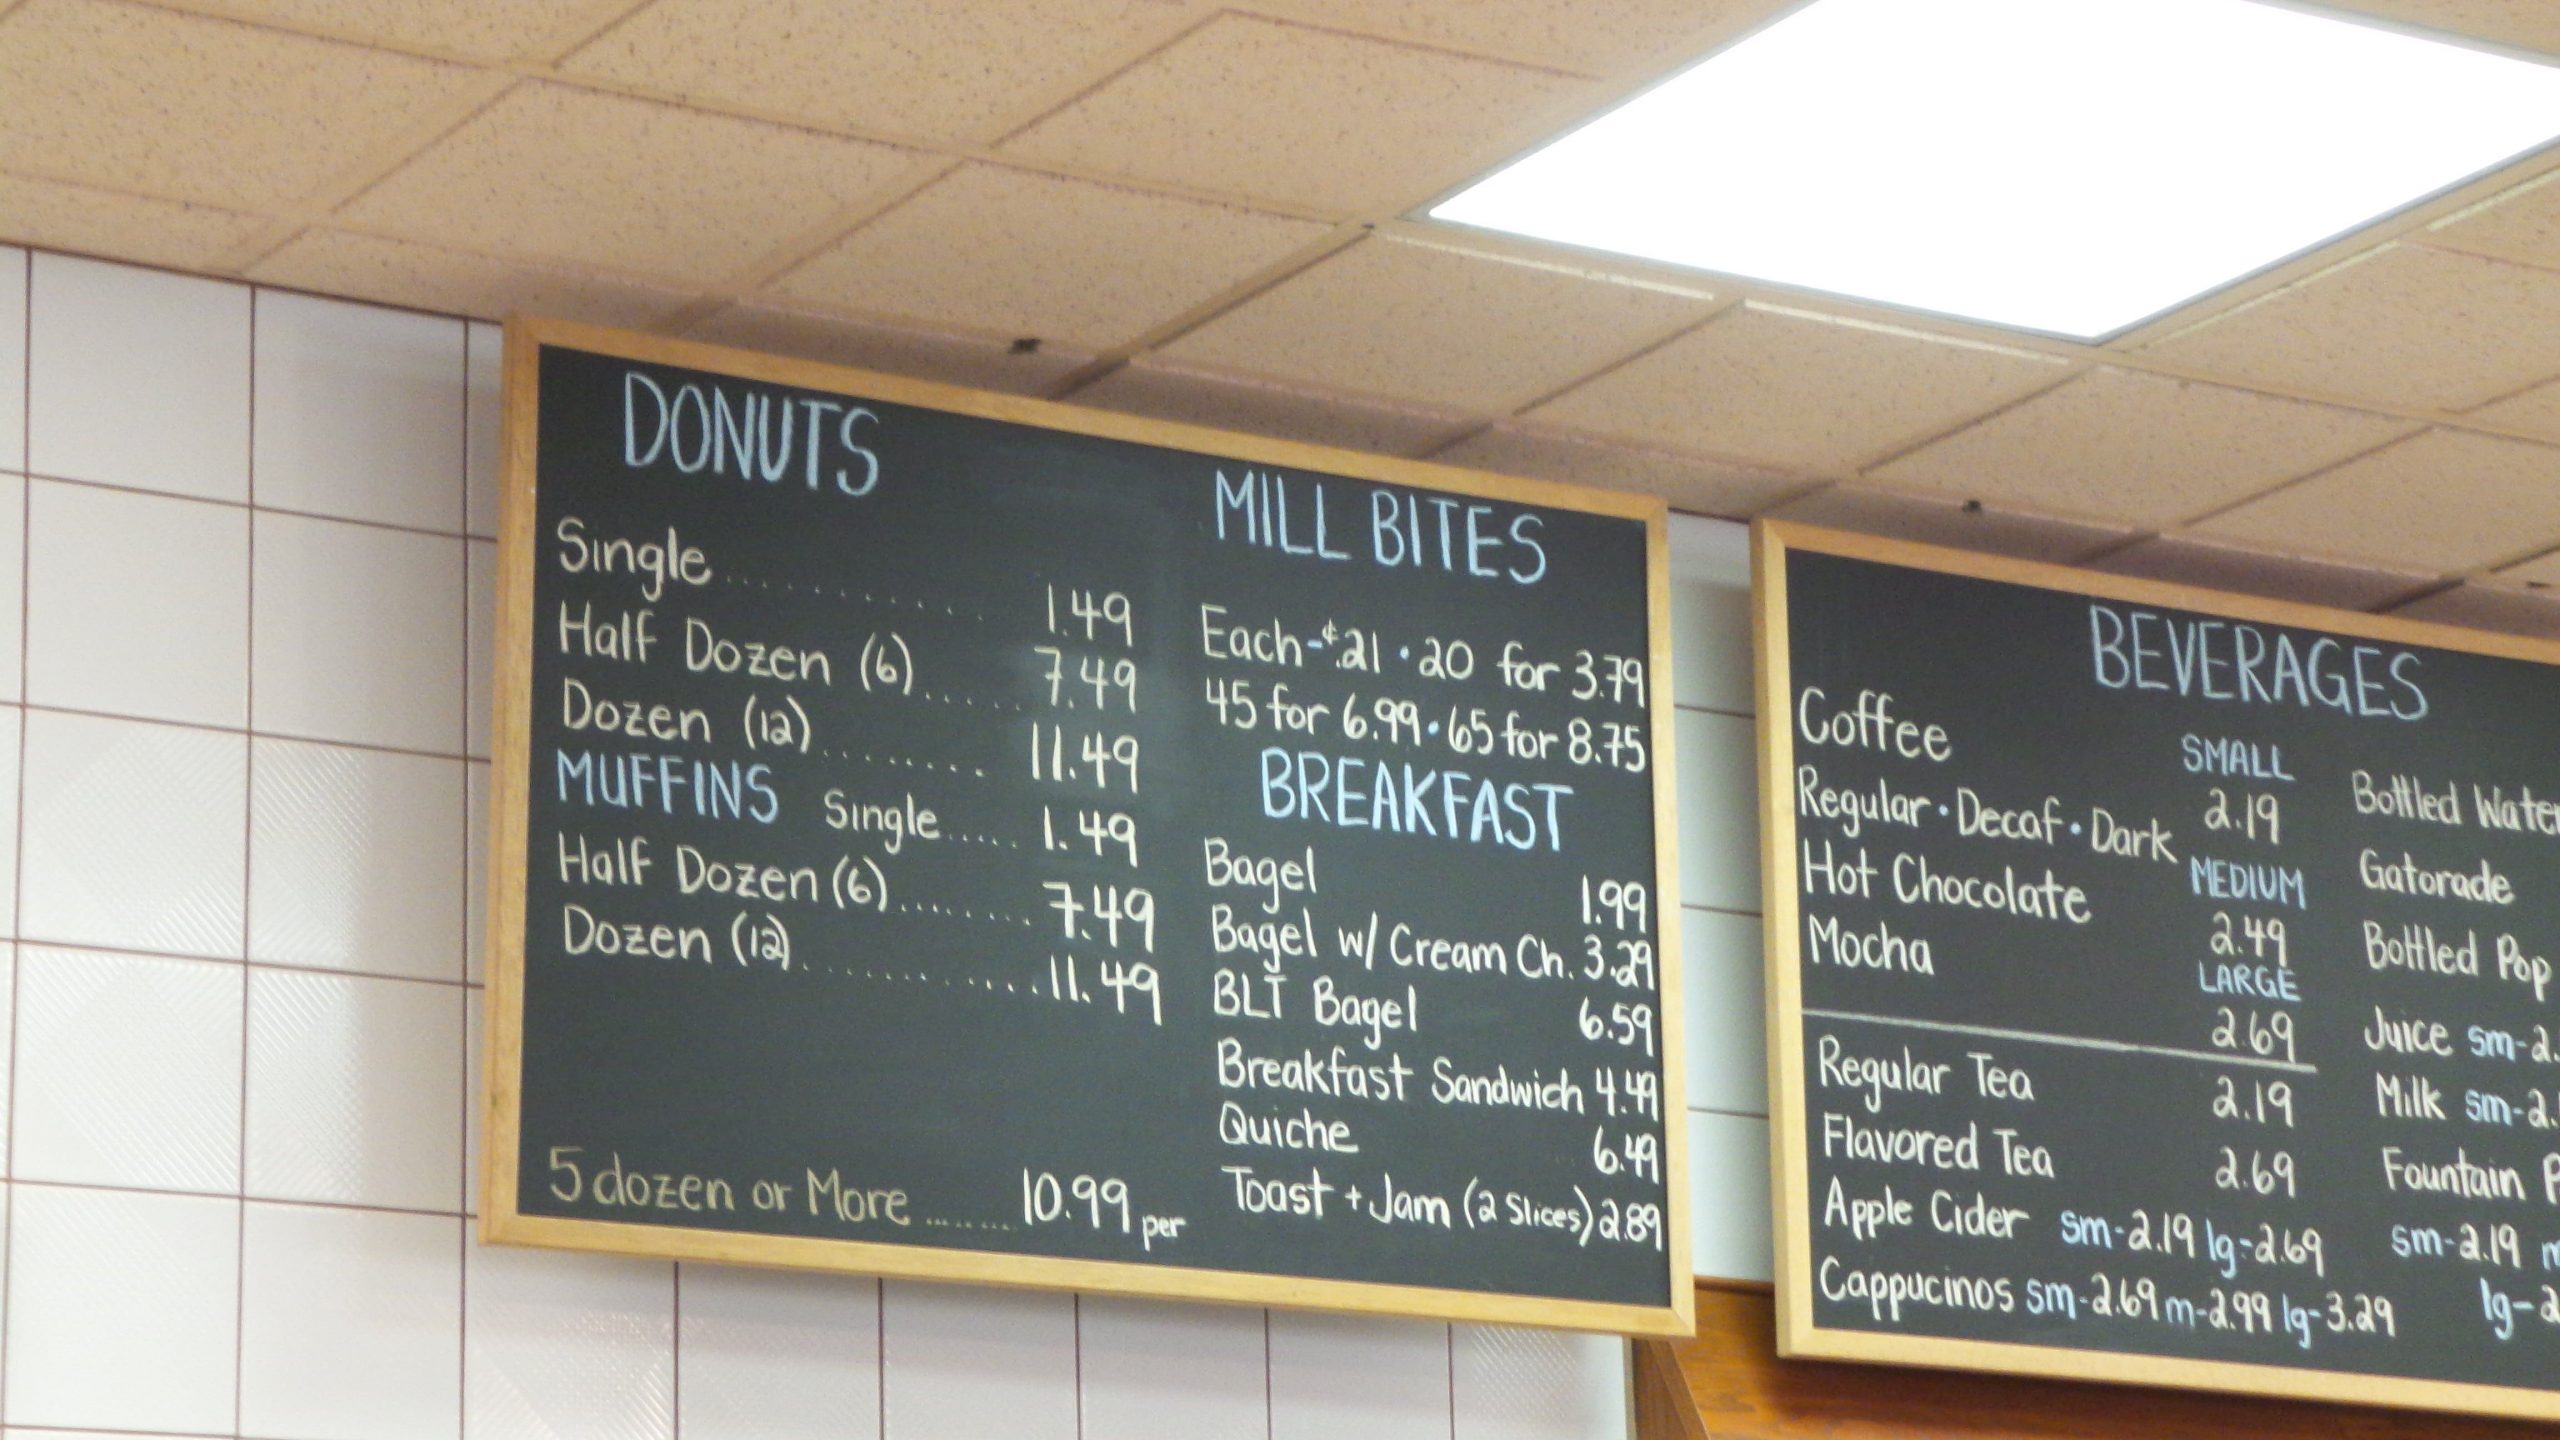 DONUTS
Single.......... 1.49
Half Dozen (6)..... 7.49
Dozen (12)........ 11.49
MUFFINS Single..... 1.49
Half Dozen (6)........ 7.49
Dozen (12)............ 11.49
5 dozen or More ........ 10.99 per
MILL BITES
Each-¢.21 · 20 for 3.79
45 for 6.99 · 65 for 8.75
BREAKFAST
Bagel 1.99
Bagel w/ Cream Ch. 3.29
BLT Bagel 6.59
Breakfast Sandwich 4.49
Quiche 6.49
Toast + Jam (2 Slices) 2.89
BEVERAGES
Coffee
Regular · Decaf · Dark
Hot Chocolate
Mocha
SMALL
2.19
MEDIUM
2.49
LARGE
2.69
Regular Tea 2.19
Flavored Tea 2.69
Apple Cider sm-2.19 lg-2.69
Cappucinos sm-2.69 m-2.99 lg-3.29
Bottled Water
Gatorade
Bottled Pop
Juice sm-2.
Milk sm-2.
Fountain P
sm-2.19 m
lg-2